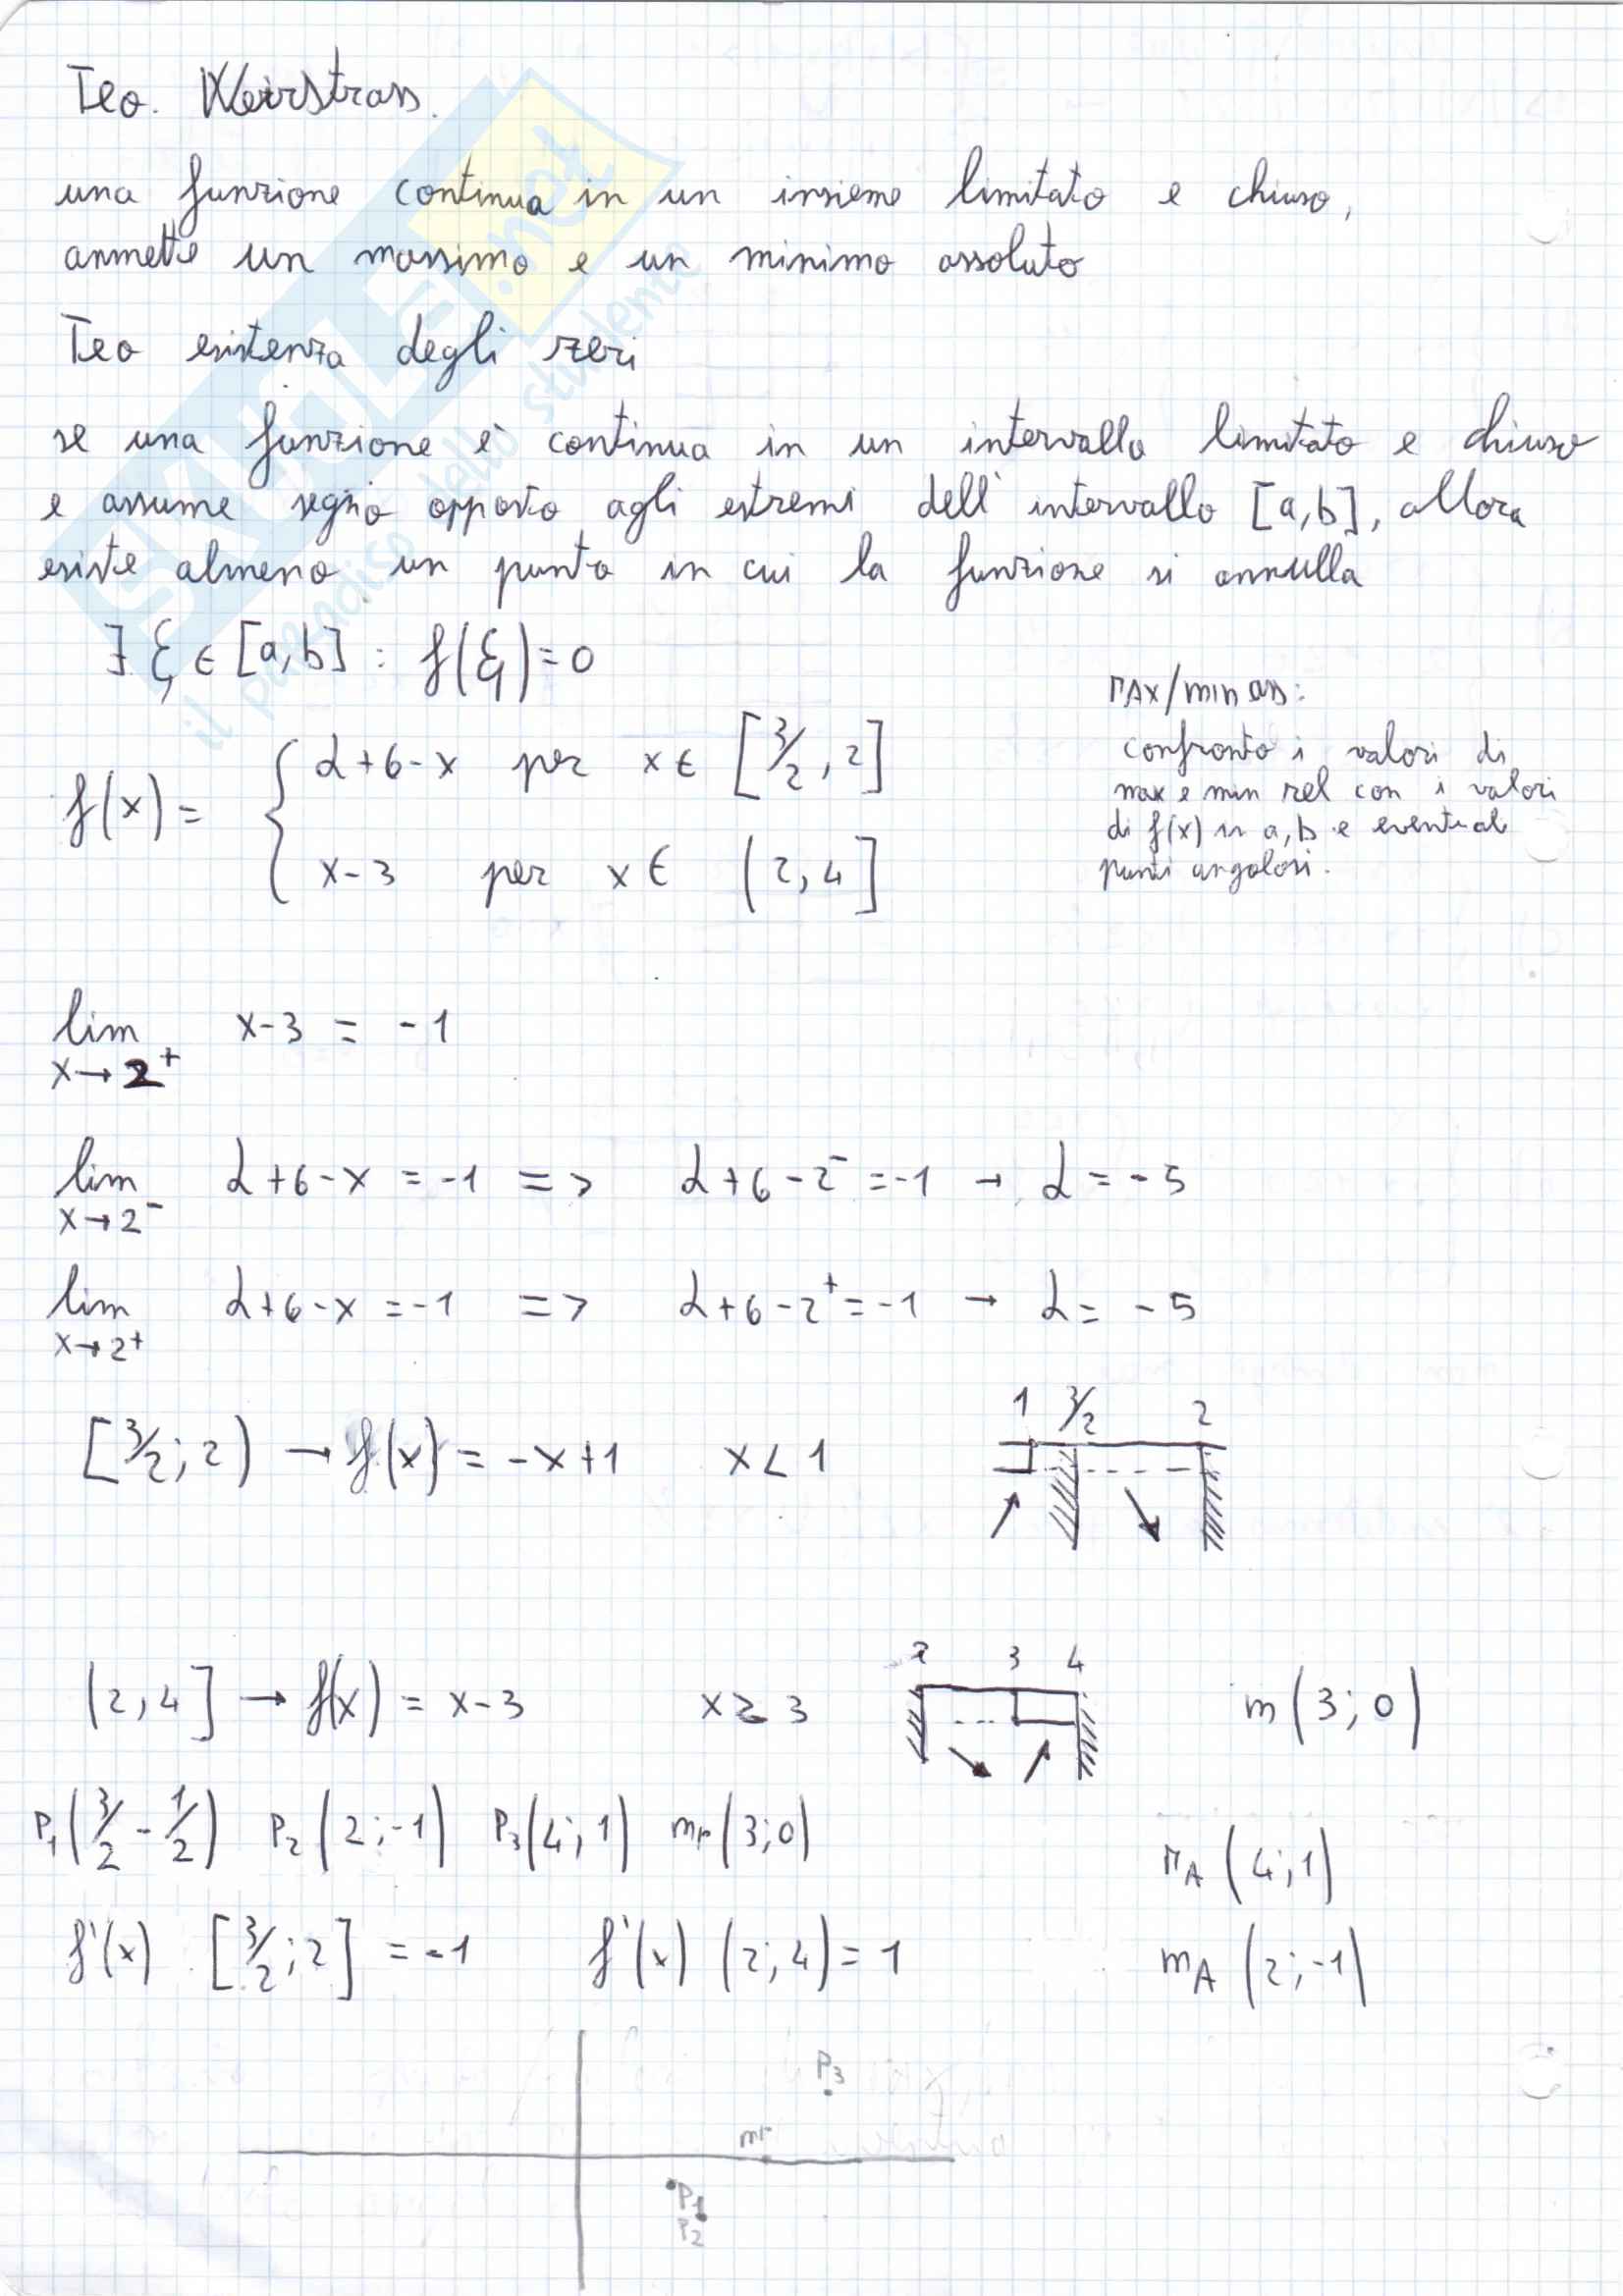 Teo. Weirstrass.
una funzione continua in un insieme limitato e chiuso,
ammette un massimo e un minimo assoluto
Teo esistenza degli zeri
se una funzione è continua in un intervallo limitato e chiuso
e assume segno opposto agli estremi dell'intervallo [a,b], allora
esiste almeno un punto in cui la funzione si annulla
∃ ξ ∈ [a,b] : f(ξ)=0
MAX/min ass:
confronto i valori di
max e min rel con i valori
di f(x) in a,b e eventuali
punti angolosi.
f(x) = { α+6-x per x ∈ [3/2, 2]
x-3 per x ∈ (2,4]
lim x→2⁺ x-3 = -1
lim x→2⁻ α+6-x = -1 => α+6-2⁻ = -1 → α = -5
lim x→2⁺ α+6-x = -1 => α+6-2⁺ = -1 → α = -5
[3/2; 2) → f(x) = -x+1 x<1 1 3/2 2
(2,4] → f(x) = x-3 x≥3 2 3 4 m(3;0)
P₁(3/2 -1/2) P₂(2;-1) P₃(4;1) mr(3;0) M_A(4;1)
f'(x) [3/2;2] = -1 f'(x) (2;4) = 1 m_A(2;-1)
P₃
mr
P₁
P₂
SKUOLA.net
il paradiso dello studente